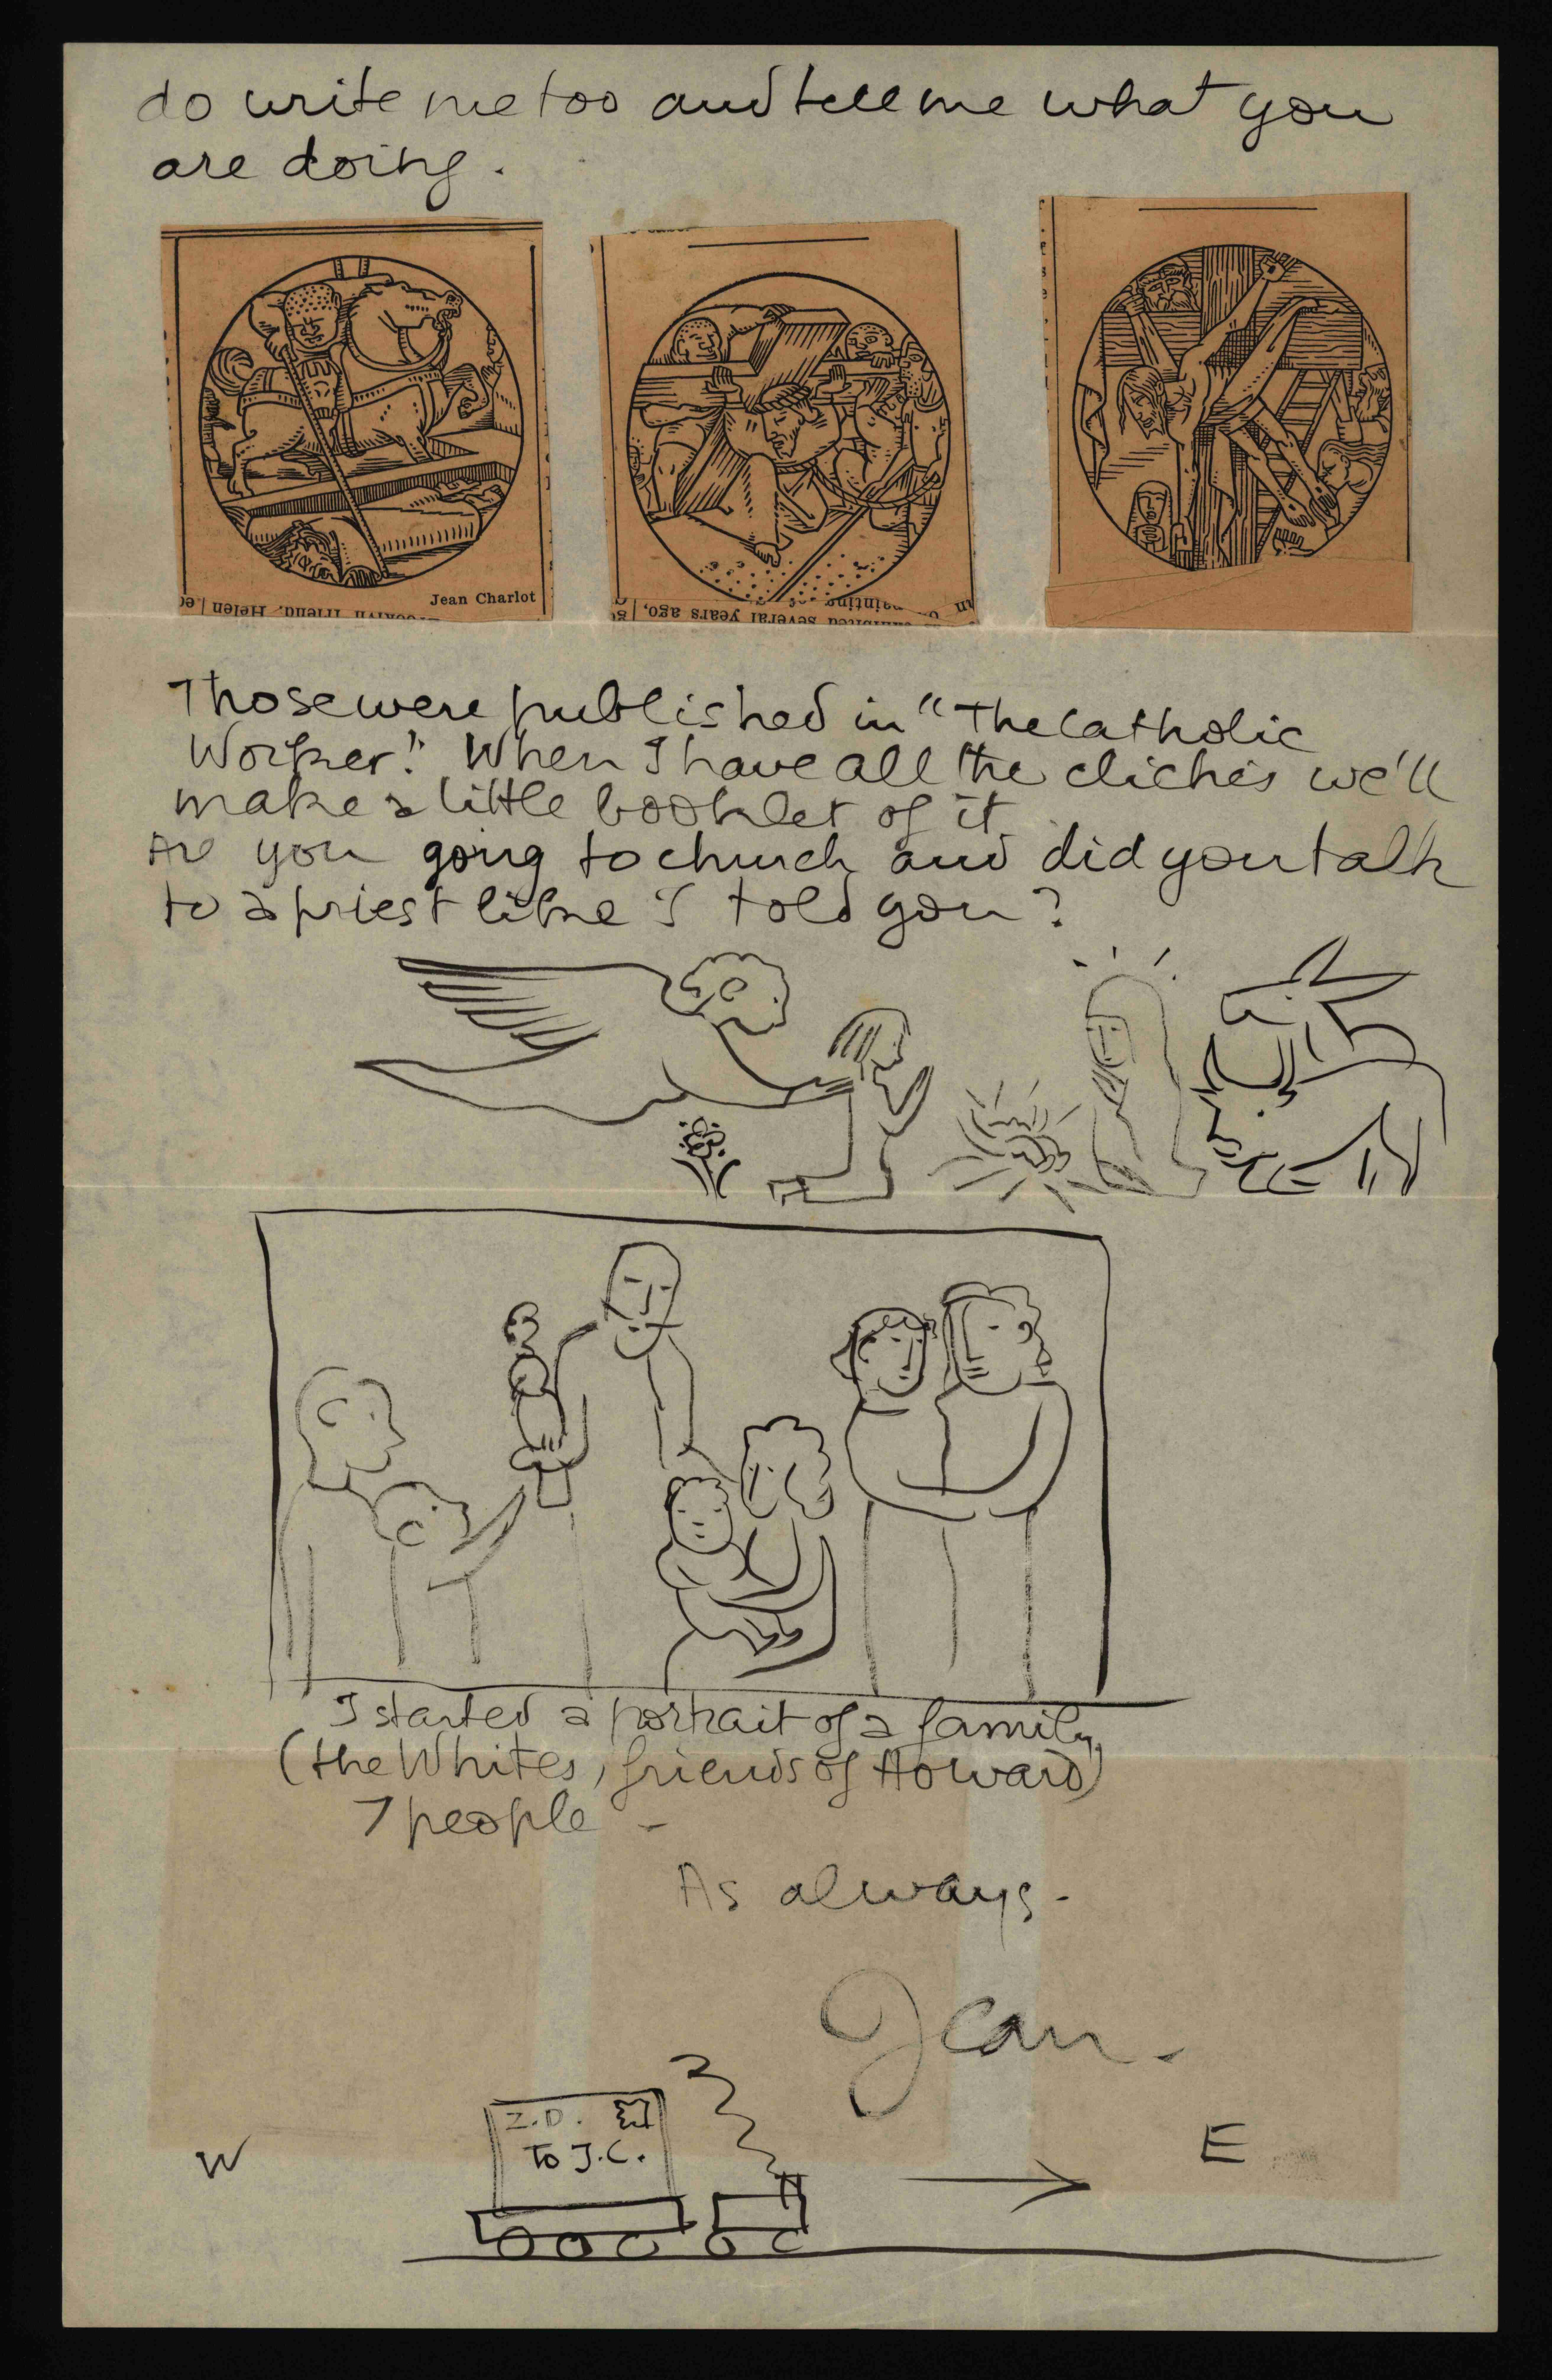 do write me too and tell me what you
are doing.
Jean Charlot
Brooklyn friend, Helen
painting
exhibited several years ago,
Those were published in "The Catholic
Worker." When I have all the clichés we'll
make a little booklet of it
Are you going to church and did you talk
to a priest like I told you?
I started a portrait of a family
(the Whites, friends of Howard)
7 people -
As always -
Jean.
Z.D.
To J.C.
W
E